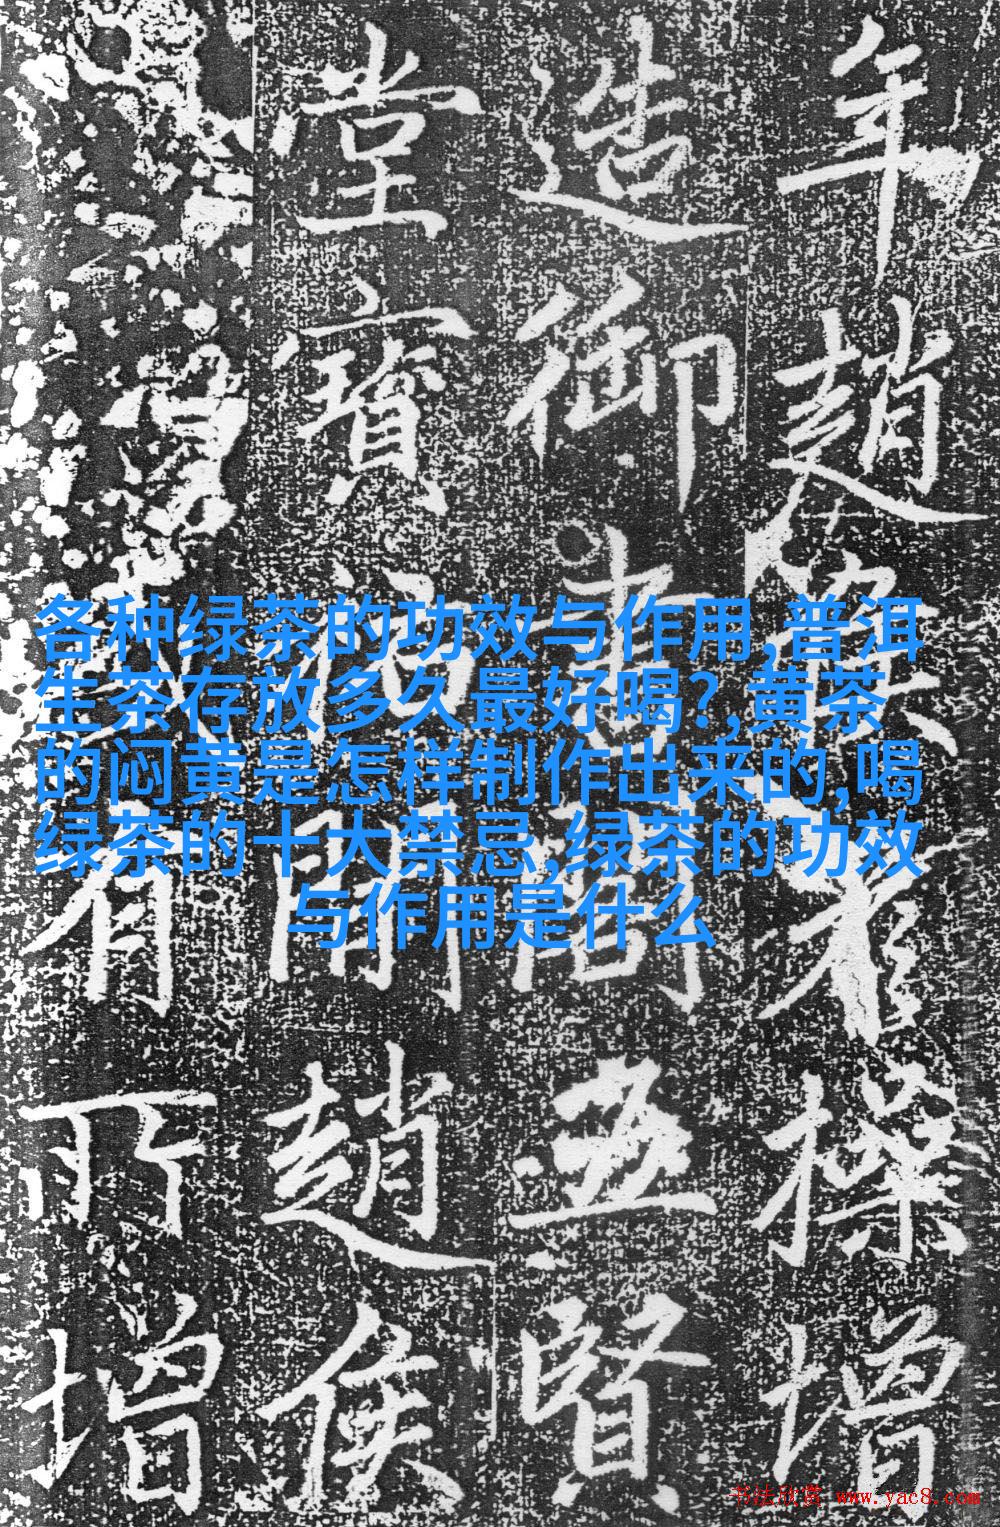 各种绿茶的功效与作用,普洱
生茶存放多久最好喝?,黄茶
的闷黄是怎样制作出来的,喝
绿茶的十大禁忌,绿茶的功效
与作用是什么
年趙操增
造御書閣五賢
堂寶趙侯
有所增
书法欣赏 www.yac8.com